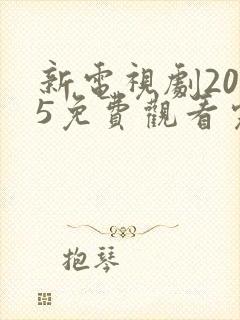 新電視劇20
5免費觀看
抱琴